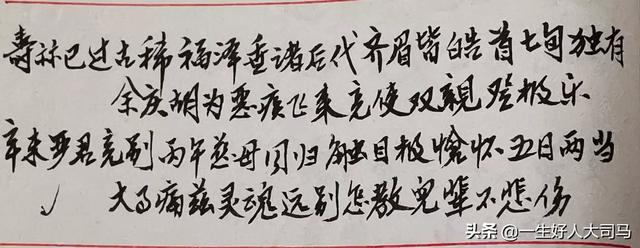 寿祘已过古稀福泽垂诸后代齐眉皆皓首七旬独有
余庆胡为恶疾飞来竟使双亲登极乐
辛未严君竟别丙午慈母同归触目极怆怀五日两当
大事痛兹灵魂远别怎教儿辈不悲伤
头条 @一生好人大司马